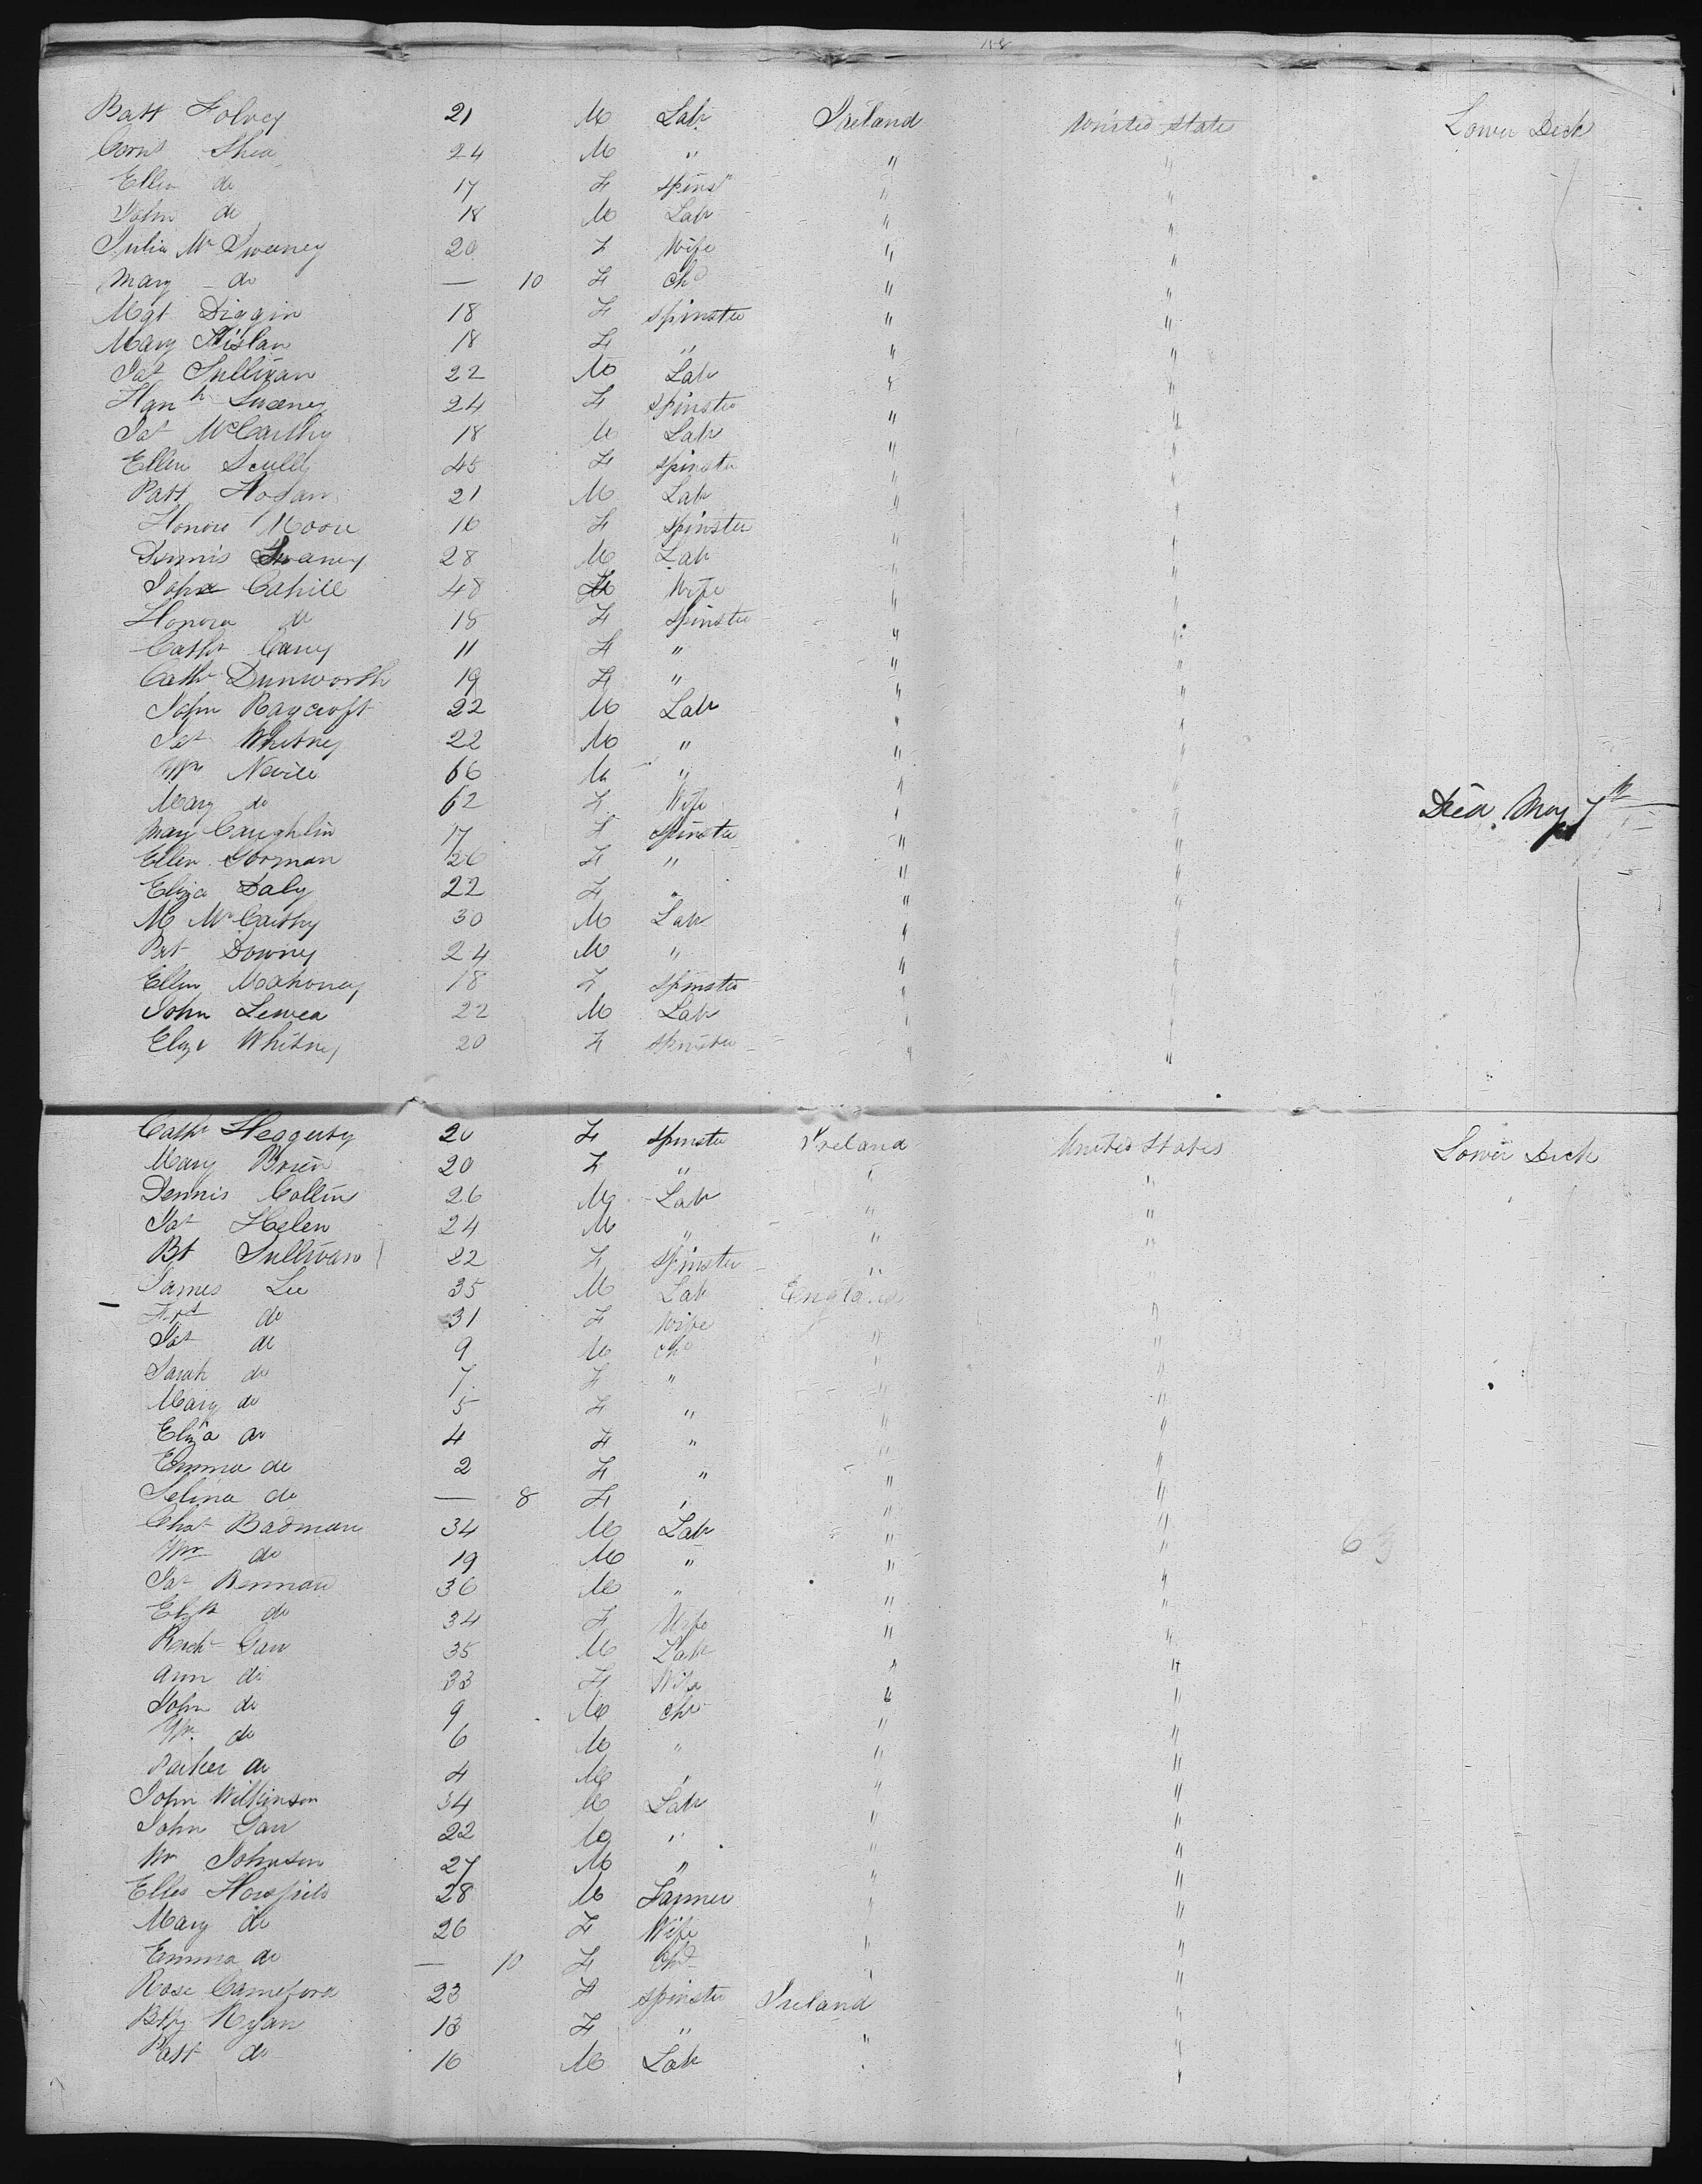 158
Batt Folvey 21 M Labr Ireland United States Lower Deck
Corns Shea 24 M " " "
Ellen do 17 F Spinsr " "
John do 18 M Labr " "
Julia Mc Sweeney 20 F Wife " "
Mary do — 10 F Chd " "
Mgt Diggin 18 F Spinster " "
Mary 18 F " " "
Jas Sullivan 22 M Labr " "
Hanh Sweeney 24 F Spinster " "
Jas McCarthy 18 M Labr " "
Ellen Scully 45 F Spinster " "
Patt Hogan 21 M Labr " "
Honore Moore 16 F Spinster " "
Dennis Sweaney 28 M Labr " "
John Cahill 48 Wife " "
Honora do 18 F Spinster " "
Cathr Carey 11 F " " "
Cathr Dunworth 19 F " " "
John Raycroft 22 M Labr " "
Jas Whitney 22 M " " "
Wm Nevill 66 M " " "
Mary do 62 F Wife " " Died May 7th
Mary Caughlin 17 F Spinster " "
Ellen Gorman 26 F " " "
Eliza Daly 22 F " " "
M McCarthy 30 M Labr " "
Pat Downey 24 M " " "
Ellen Mahoney 18 F Spinster " "
John 22 M Labr " "
Eliza Whitney 20 F Spinster " "
Cathr Heggerty 20 F Spinster Ireland United States Lower Deck
Mary Brien 20 F " " "
Dennis Collins 26 M Labr " "
Jas Helen 24 M " " "
Bt Sullivan 22 F Spinster "
James Lee 35 M Labr England
do 31 F Wife "
Jas do 9 M Chd " "
Sarah do 7 F " " "
Mary do 5 F " " "
Eliza do 4 F " " "
Emma do 2 F " " "
Selina do — 8 F " " "
Chas Badman 34 M Labr " "
Wm do 19 M " " " 63
Jas Benman 36 M " " "
Elizh do 34 F Wife " "
Richd Gaw 35 M Labr " "
Ann do 33 F Wife " "
John do 9 M Chd " "
Wm do 6 M " " "
Parker do 4 M " " "
John Wilkinson 34 M Labr " "
John Gaw 22 M " " "
Wm Johnson 27 M " " "
Elles Horsfield 28 M Farmer " "
Mary do 26 F Wife " "
Emma do — 10 F Chd " "
Rose Cameford 23 F Spinster Ireland "
Btty Ryan 13 F " " "
Patt do 16 M Labr " "